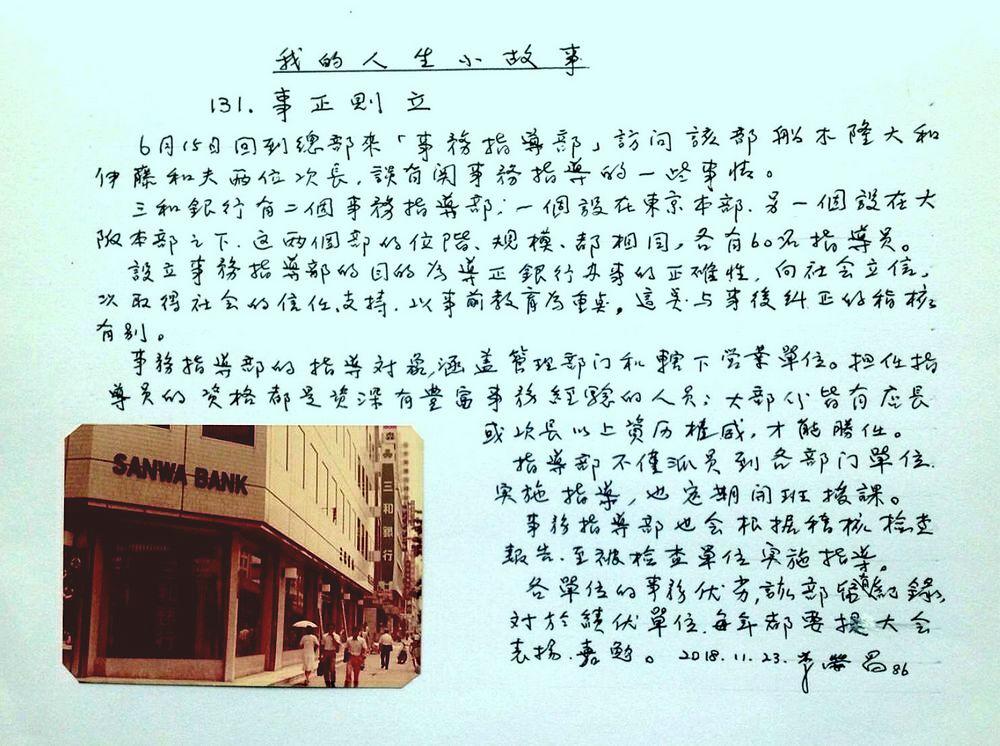 我的人生小故事
131. 事正則立
6月15日回到總部來「事務指導部」訪问該部船木隆大和
伊藤和夫两位次長,談有関事務指導的一些事情。
三和銀行有二個事務指導部;一個設在東京本部.另一個設在大
阪本部之下.这两個部的位階、規模、都相同,各有60名指導員。
設立事務指導部的目的為導正銀行办事的正確性,向社会立信,
以取得社会的信任、支持.以事前教育為重奌,這奌与事後糾正的稽核
有别。
事務指導部的指導对象,涵盖管理部门和轄下営業單位。担任指
導員的資格都是資深有豊富事務経驗的人員;大部份皆有店長
或次長以上資历權威,才能勝任。
指導部不僅派員到各部门單位
実施指導,也定期開班授課。
事務指導部也会根据稽核檢查
報告.至被檢查單位実施指導。
各單位的事務优劣,該部皆有紀錄,
对於績优單位.每年都要提大会
表扬.嘉勉。2018.11.23. 榮昌86
SANWA BANK
三和銀行